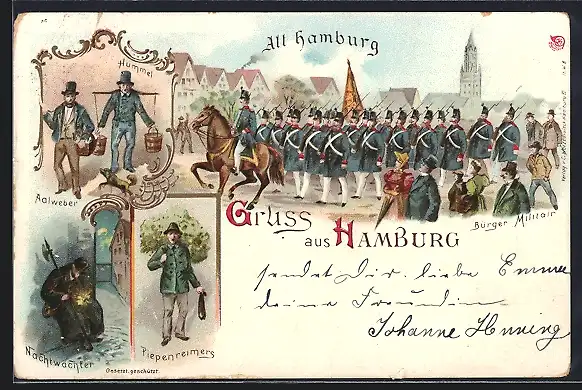 Alt Hamburg
Hummel
Aalweber
Bürger Militair
Gruss
aus Hamburg
sendet Dir, liebe Emma
deine Freundin
Johanne Henning
Nachtwächter
Piepenreimers
Gesetzl. geschützt.